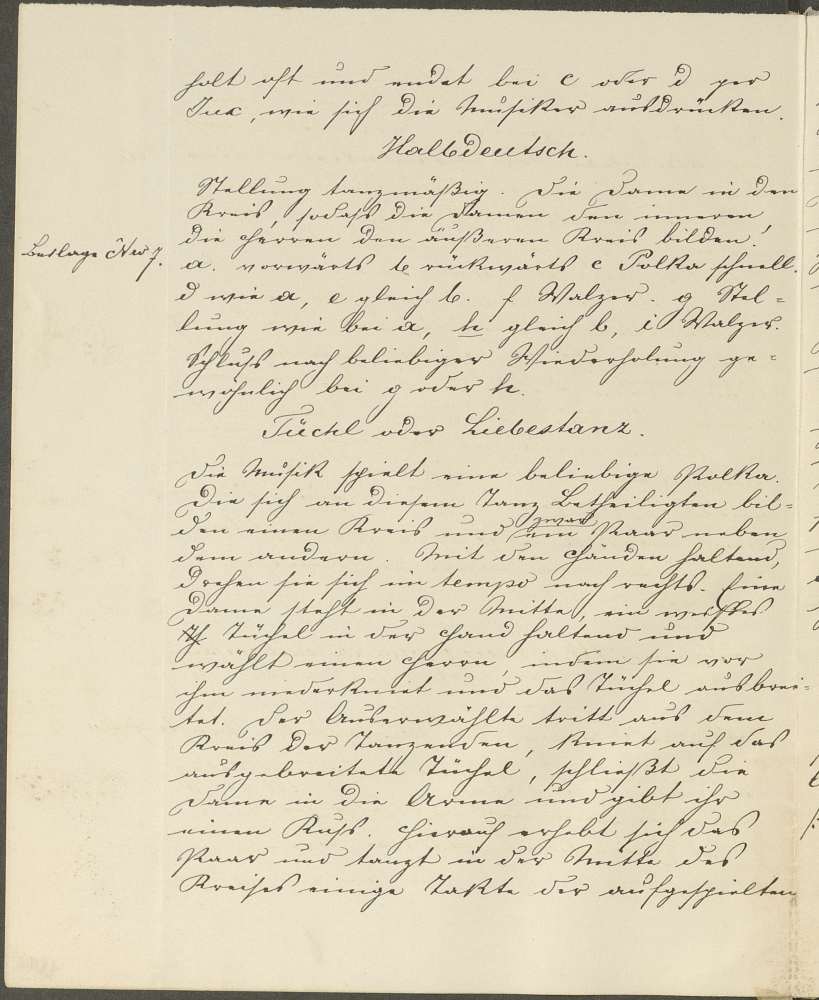 holt oft und endet bei c oder d per
Jux, wie sich die Musiker ausdrücken.
Halbdeutsch.
Stellung tanzmäßig. Die Dame in den
Kreis, sodaß die Damen den inneren,
die Herren den äußeren Kreis bilden.
Beilage Nro 7.
a. vorwärts b rückwärts c Polka schnell.
d wie a, e gleich b. f Walzer. g Stel=
lung wie bei a, h gleich b, i Walzer.
Schluß nach beliebiger Wiederholung ge=
wöhnlich bei g oder h.
Tüchl oder Liebestanz.
Die Musik spielt eine beliebige Polka.
Die sich an diesem Tanz Betheiligten bil=
den einen Kreis und zwar ein Paar neben
dem andern. Mit den Händen haltend,
drehen sie sich im tempo nach rechts. Eine
Dame steht in der Mitte, ein weißes
Tüchel in der Hand haltend und
wählt einen Herrn, indem sie vor
ihm niederkniet und das Tüchel ausbrei=
tet. Der Auserwählte tritt aus dem
Kreis der Tanzenden, kniet auf das
ausgebreitete Tüchel, schließt die
Dame in die Arme und gibt ihr
einen Kuß. Hierauf erhebt sich das
Paar und tanzt in der Mitte des
Kreises einige Takte der aufgespielten